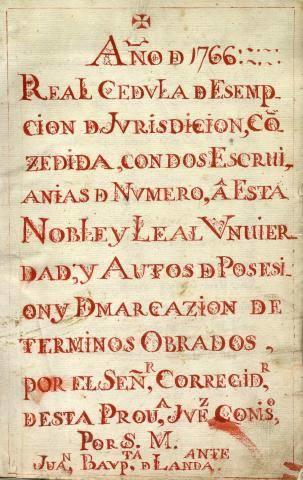 ✠
AÑO D 1766:::::
REAL CEDULA D ESEMP
CION D JURISDICION, CÕ
ZEDIDA, CON DOS ESCRIU
ANIAS D NUMERO, Â ESTA
NOBLE Y LEAL VNUIER
DAD; Y AUTOS D POSESI
ON Y DMARCAZION DE
TERMINOS OBRADOS,
POR EL SEÑ.R CORREGID.R
DESTA PROU.A, JUEZ COMS.O,
POR S. M.
JUA.N BAUP.TA D LANDA.
ANTE